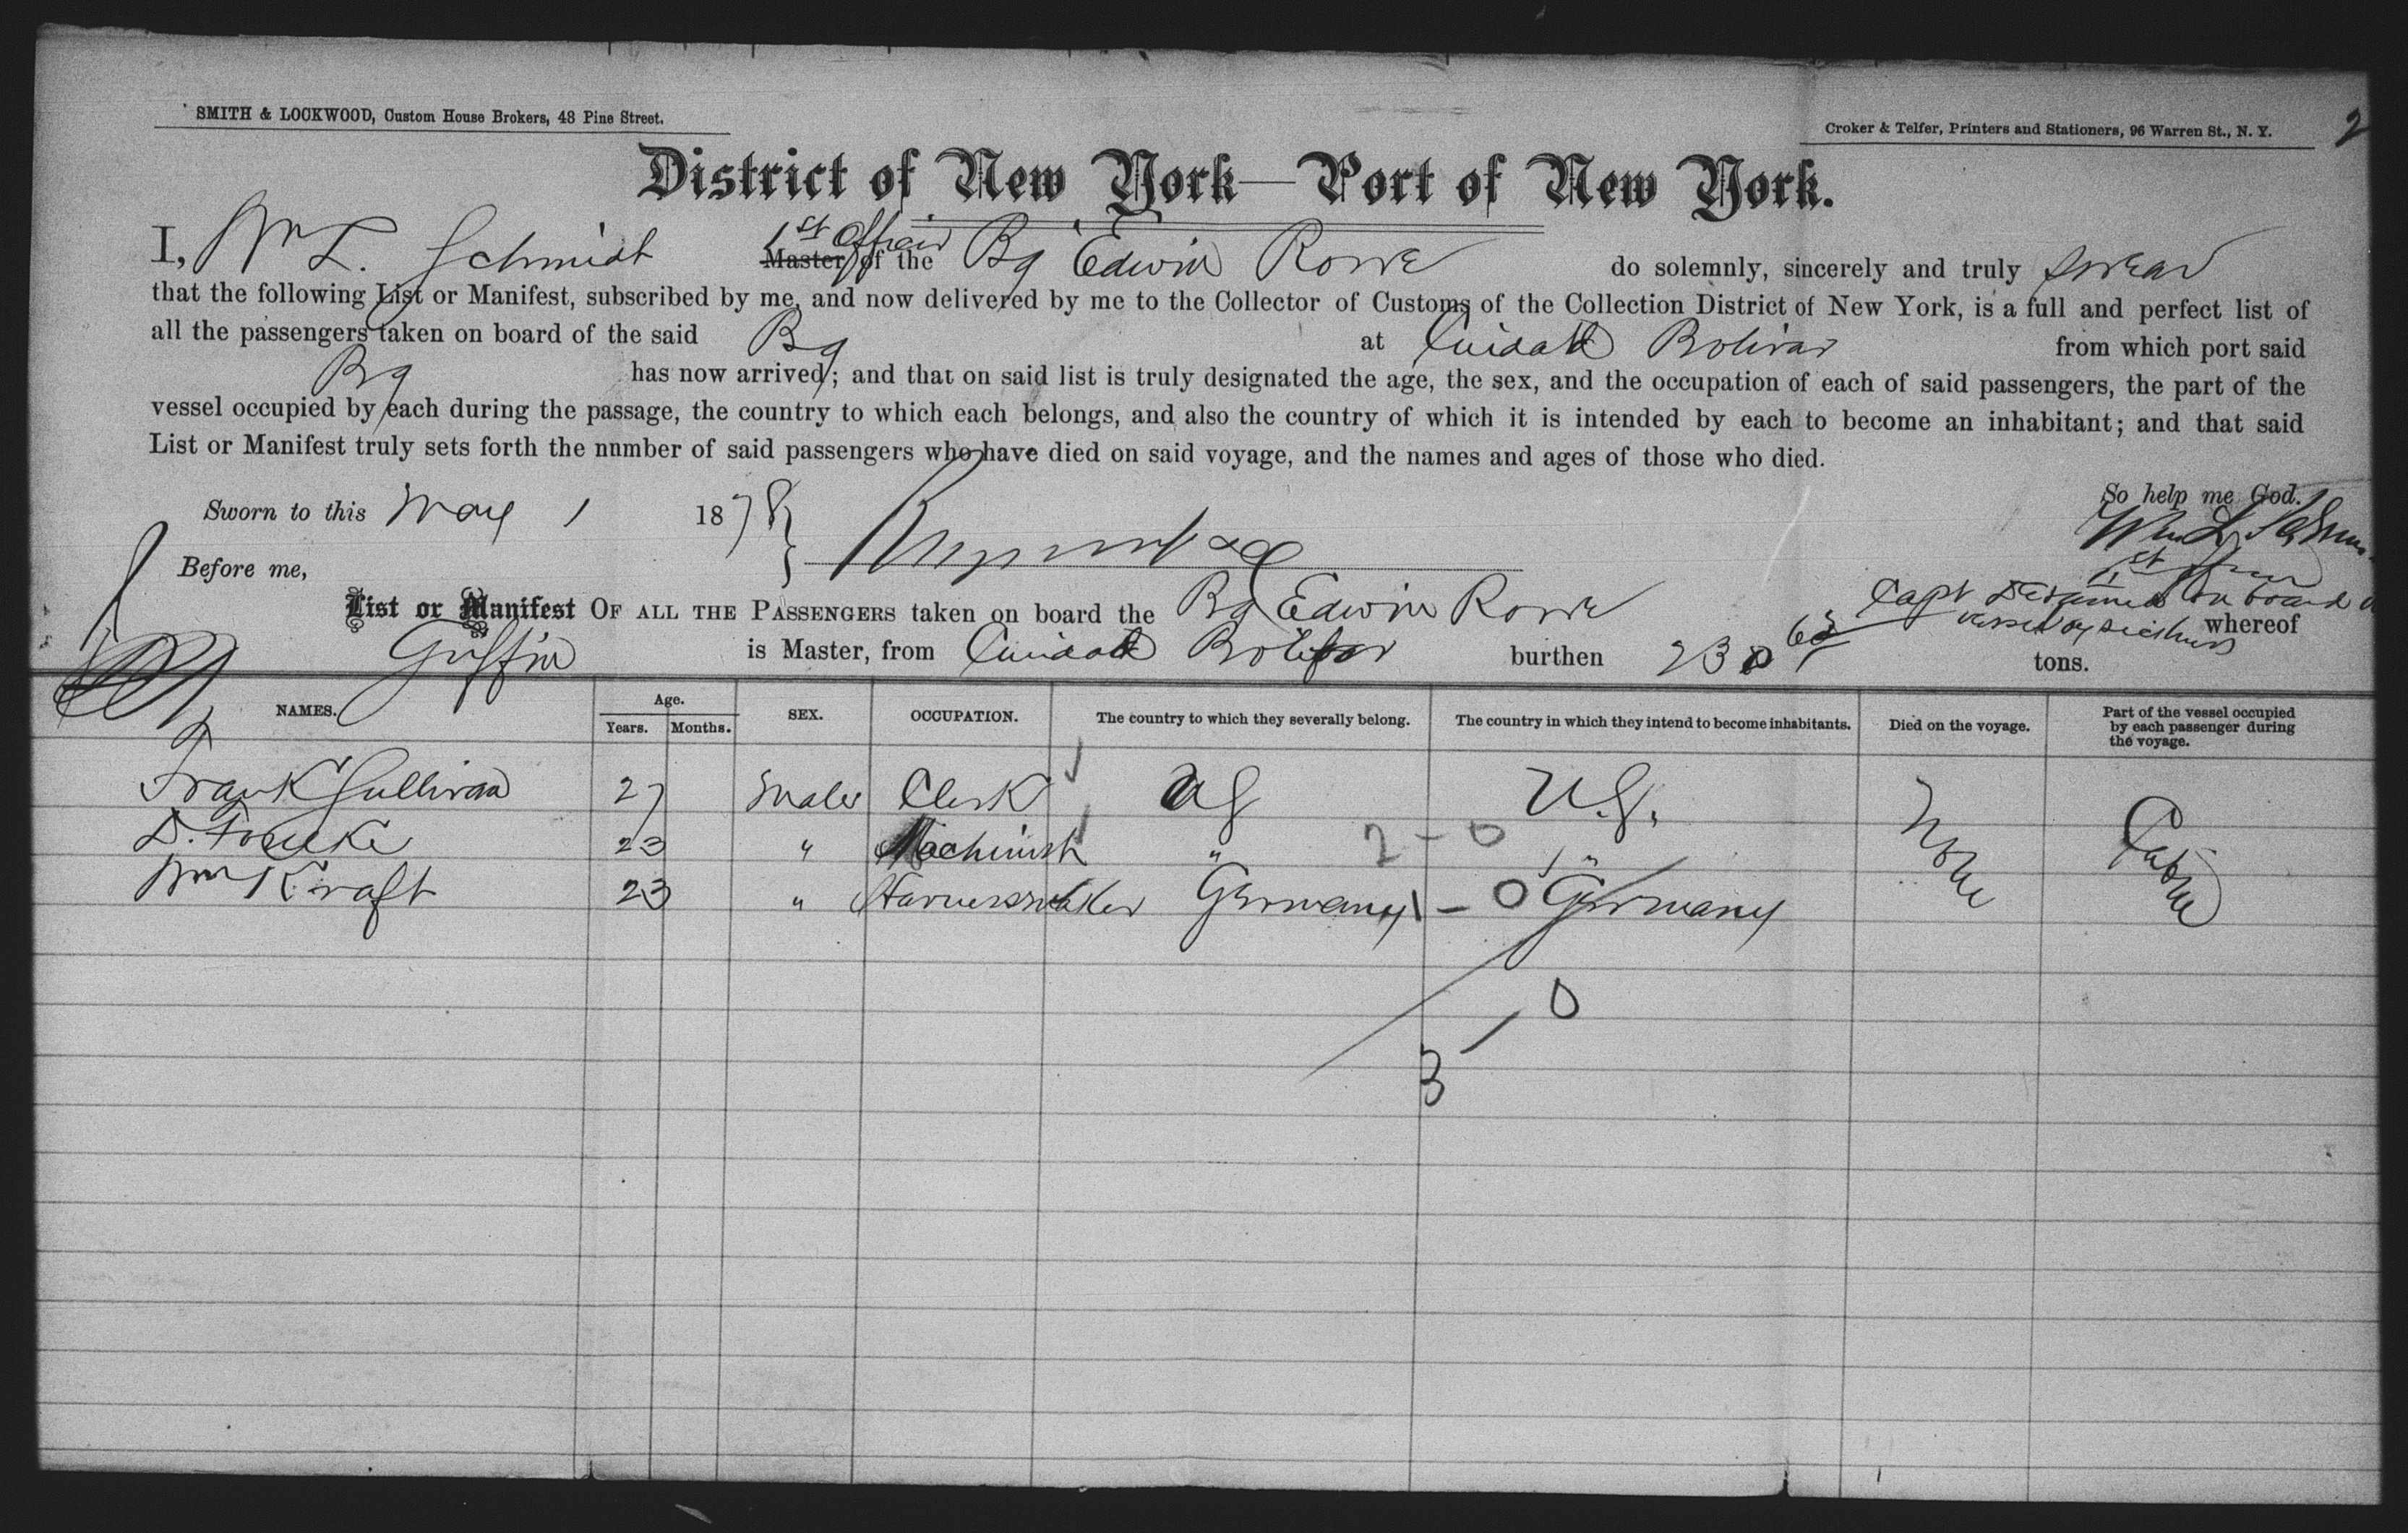 SMITH & LOCKWOOD, Custom House Brokers, 48 Pine Street.
Croker & Telfer, Printers and Stationers, 96 Warren St., N. Y.
2
District of New York—Port of New York.
1st Officer
I, Wm L. Schmidt Master of the Bg Edwin Rowe do solemnly, sincerely and truly swear
that the following List or Manifest, subscribed by me, and now delivered by me to the Collector of Customs of the Collection District of New York, is a full and perfect list of
all the passengers taken on board of the said Bg at Cuidad Bolivar from which port said
Bg has now arrived; and that on said list is truly designated the age, the sex, and the occupation of each of said passengers, the part of the
vessel occupied by each during the passage, the country to which each belongs, and also the country of which it is intended by each to become an inhabitant; and that said
List or Manifest truly sets forth the number of said passengers who have died on said voyage, and the names and ages of those who died.
So help me God.
Sworn to this May 1 1878
Wm L Schm
Before me,
1st
Capt Detained on board
vessel by sickness
List or Manifest OF ALL THE PASSENGERS taken on board the Bg Edwin Rowe whereof
Griffin is Master, from Cuidad Bolivar burthen 230 63 tons.
NAMES. Age. Years. Months. SEX. OCCUPATION. The country to which they severally belong. The country in which they intend to become inhabitants. Died on the voyage. Part of the vessel occupied by each passenger during the voyage.
Frank Sullivan 27 Male Clerk US U.S. None Cabin
D. 23 " Machinist " 2 - 0 "
Wm Kraft 23 " Harnessmaker Germany 1 - 0 Germany
3 - 0